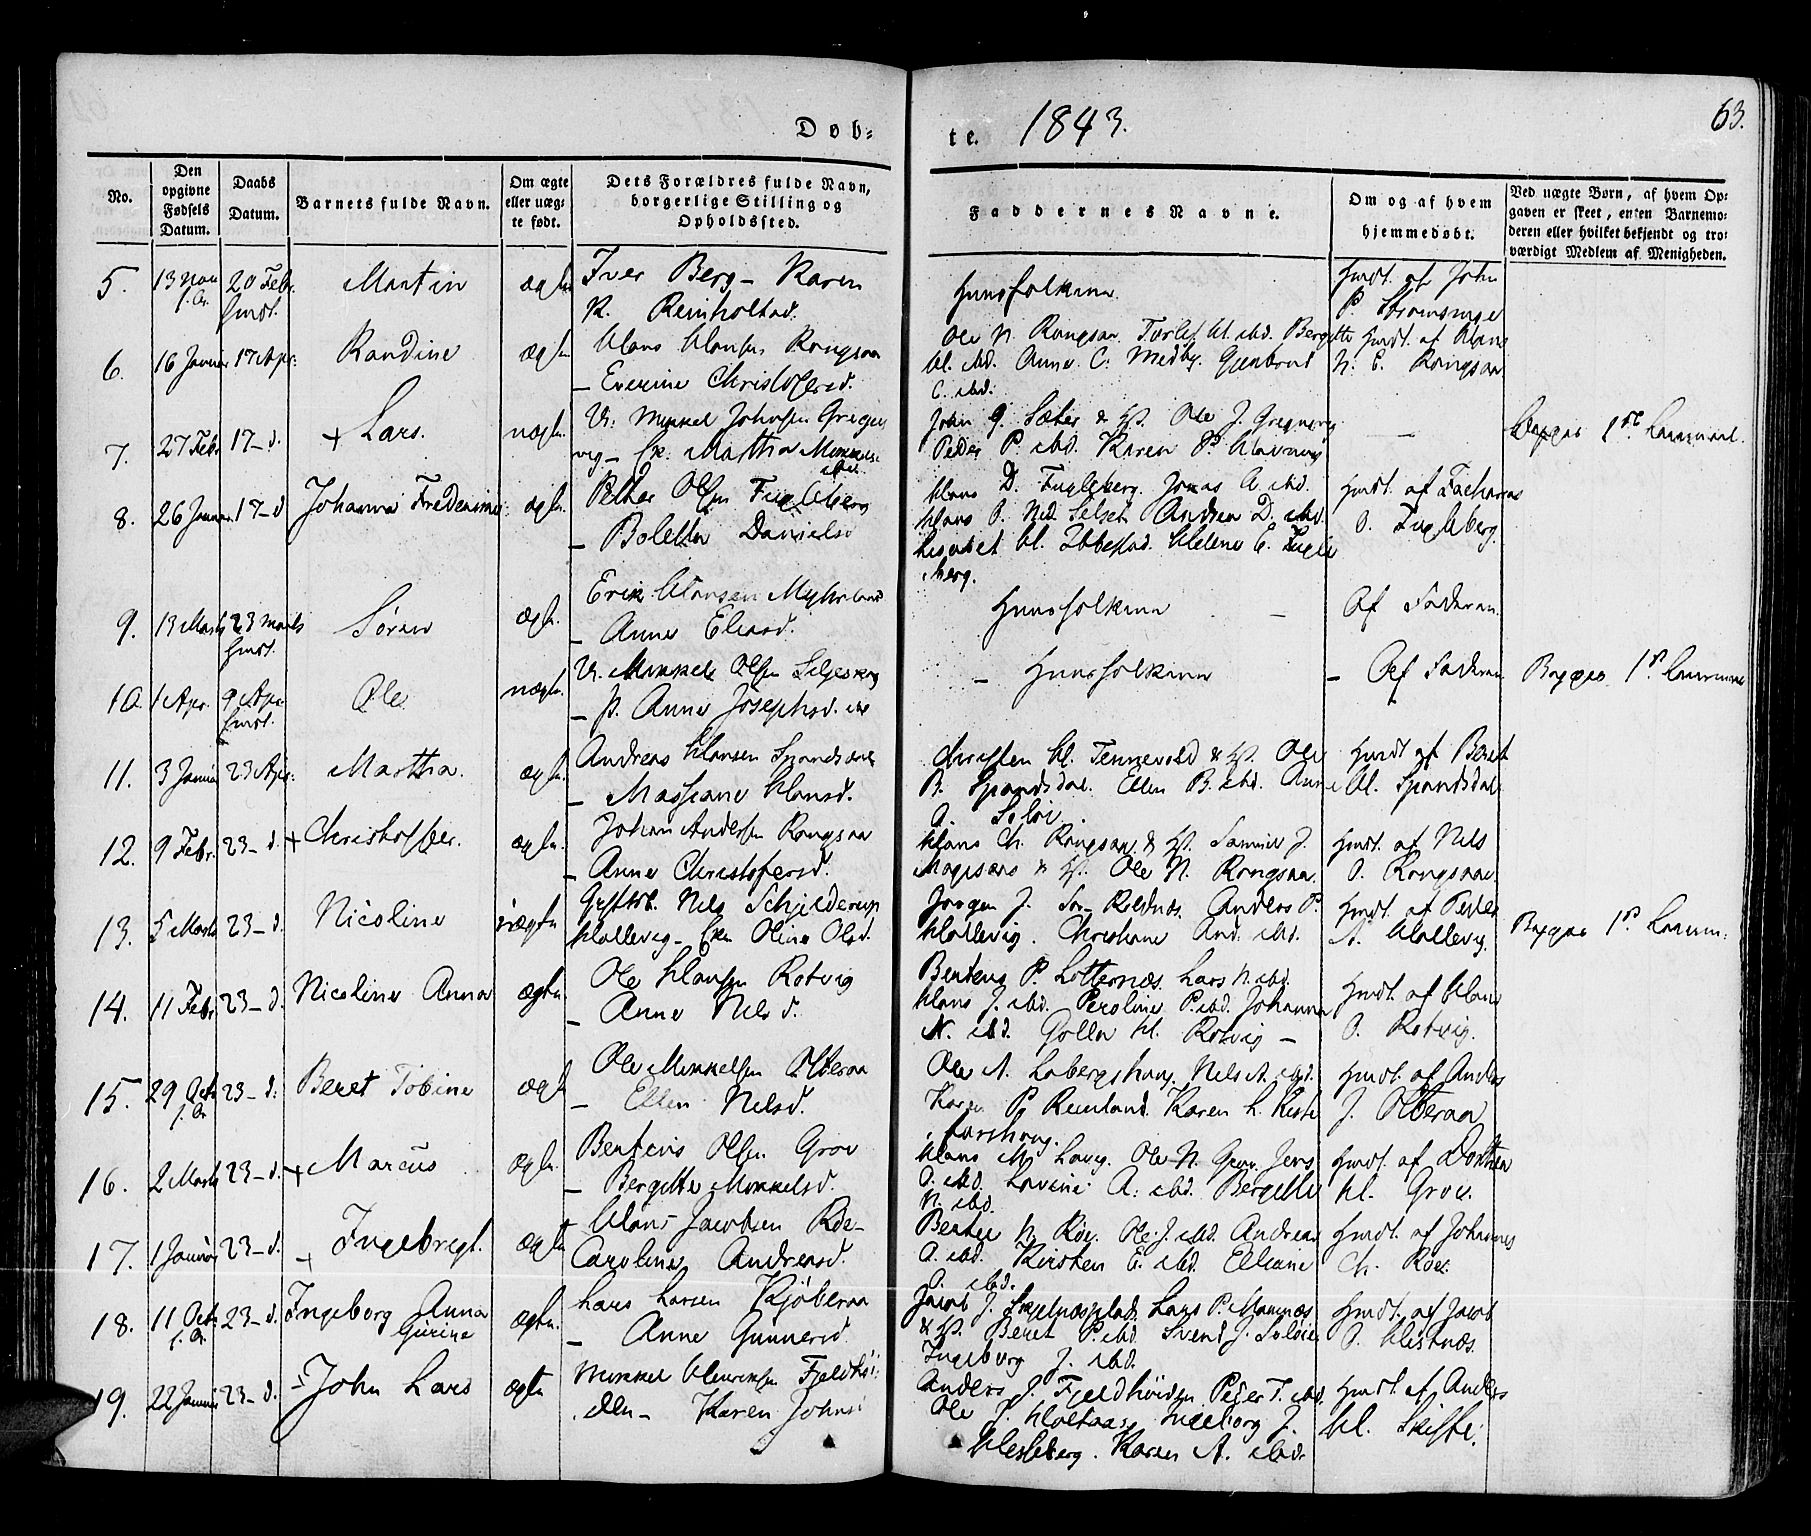 Døb-
te. 1843.
63.
No.
Den opgivne Fødsels Datum.
Daabs Datum.
Barnets fulde Navn.
Om ægte eller uæg-
te født.
Dets Forældres fulde Navn,
borgerlige Stilling og
Opholdssted.
Faddernes Navne.
Om og af hvem
hjemmedøbt.
Ved uægte Børn, af hvem Op-
gaven er skeet, enten Barnemo-
deren eller hvilket bekjendt og tro-
værdigt Medlem af Menigheden.
5. 13 Nov f. A. 20 Febr. hmdt. Martin ægte
Iver Berg - Karen
K. Reinholtsd.
Huusfolkene
Hmdt. af John
P. Strømsmoe
6. 16 Januar 17 Apr: Randine ægte
Hans Hansen Rongsaa
- Everine Christofersd.
Ole N. Rongsaa. Torlef H. ibd. Bergitte
H. ibd. Anne C. Medby. Gjertrud
C. ibd.
Hmdt. af Hans
N. E. Rongsaa
7. 27 Febr 17 - d. + Lars. uægte
U: Mikkel Johnsen Gregus
vig - Martha Mikkels
ibd
John G. Sæter & H. Ole J. Gregusvig
Peder P. ibd. Karen P. Havnvig
Begges 1ste Leiermaal.
8. 26 Januar 17 - d Johanna Frederikke ægte
Petter Olsen Fugleberg
- Boletta Danielsd
Hans D. Fugleberg. Jonas A. ibd.
Hans O. Ned. Selset Andrea D. ibd.
Lisabet H. Ibbestad. Helene E. Fugle
berg.
Hmdt. af Zacharias
O. Fugleberg.
9. 13 Marts 23 Marts hmdt. Søren ægte.
Erik Hansen Myhrlund
- Anne Eliasd.
Huusfolkene -
Af Faderen.
10. 1 Apr. 9 Apr hmdt. Ole uægte.
U. Mikkel Olsen Seljeskog
- P. Anne Josephsd. ibd
- Huusfolkene
- Af Faderen
Begges 1ste Leiermaal
11. 3 Januar 23 Apr: Martha. ægte.
Andreas Hansen Spandsdal
- Massiane Hansd.
Christen H. Tennevold & H. Ole
B. Spandsdal. Ellen B. ibd. Anne
O. Seløi.
Hmdt. af Beret
H. Spandsdal
12. 9 Febr. 23 - d. + Christoffer. ægte.
Johan Andersen Rongsaa
- Anne Christofersd.
Hans Ch. Rongsaa & H. Samuel J.
& H. Ole N. Rongsaa.
Hmdt. af Nils
O. Rongsaa.
13. 5 Marts 23 - d. Nicoline uægte
Nils Schjelderup
Hallevig - Oline Olsd.
Jørgen J. Sør Rollnæs. Anders P.
Hallevig. Christiane And. ibd.
Hmdt. af Peder
A. Hallevig.
Begges 1ste Leierm:
14. 11 Febr 23 - d. Nicoline Anna ægte.
Ole Hansen Rotvig
- Anne Nilsd.
Bentens P. Lotternæs. Lars N. ibd.
Hans J. ibd. Peroline P. ibd. Johanna
N. ibd. Golla H. Rotvig -
Hmdt. af Hans
O. Rotvig.
15. 29 Octb f. A. 23 - d. Beret Tobine ægte
Ole Mikkelsen Olberaa
- Ellen Nilsd.
Ole A. Labergshaug. Nils A. ibd.
Karen P. Reinland. Karen L. Kiste
forshaug.
Hmdt. af Anders
J. Olberaa
16. 2 Marts 23 - d. + Marcus ægte.
Bentens Olsen Grov
- Bergitte Mikkelsd.
Hans M. Lavig. Ole N. Grov. Jens
O. ibd. Lovise A. ibd. Bergitte
N. ibd.
Hmdt. af Dorthea
H. Grov.
17. 1 Januar 23 - d. + Ingebregt. ægte
Hans Jacobsen Røe -
Caroline Andreasd.
Bertee N. Røe. Ole J. ibd. Andreas
A. ibd. Kirsten E. ibd. Elliane
O. ibd.
Hmdt. af Johannes
Ch. Røe.
18. 11 Octb f. A. 23 - d. Ingeborg Anna
Gurine ægte.
Lars Larsen Kjøberaa
- Anne Gunnersd.
Jacob J. Lars P. Mannæs
& H. Beret P. ibd. Svend J. Seløi
Ingeborg J. ibd.
Hmdt. af Jacob
O. Hestnæs.
19. 22 Januar 23 - d. - John Lars ægte
Mikkel Henriksen Fjeldhøi
den - Karen Johns
Anders J. Fjeldhøiden Peder T. ibd.
Ole J. Holtaas. Ingeborg J.
Hesleberg. Karen A. ibd.
Hmdt. af Anders
H. Skiffte.